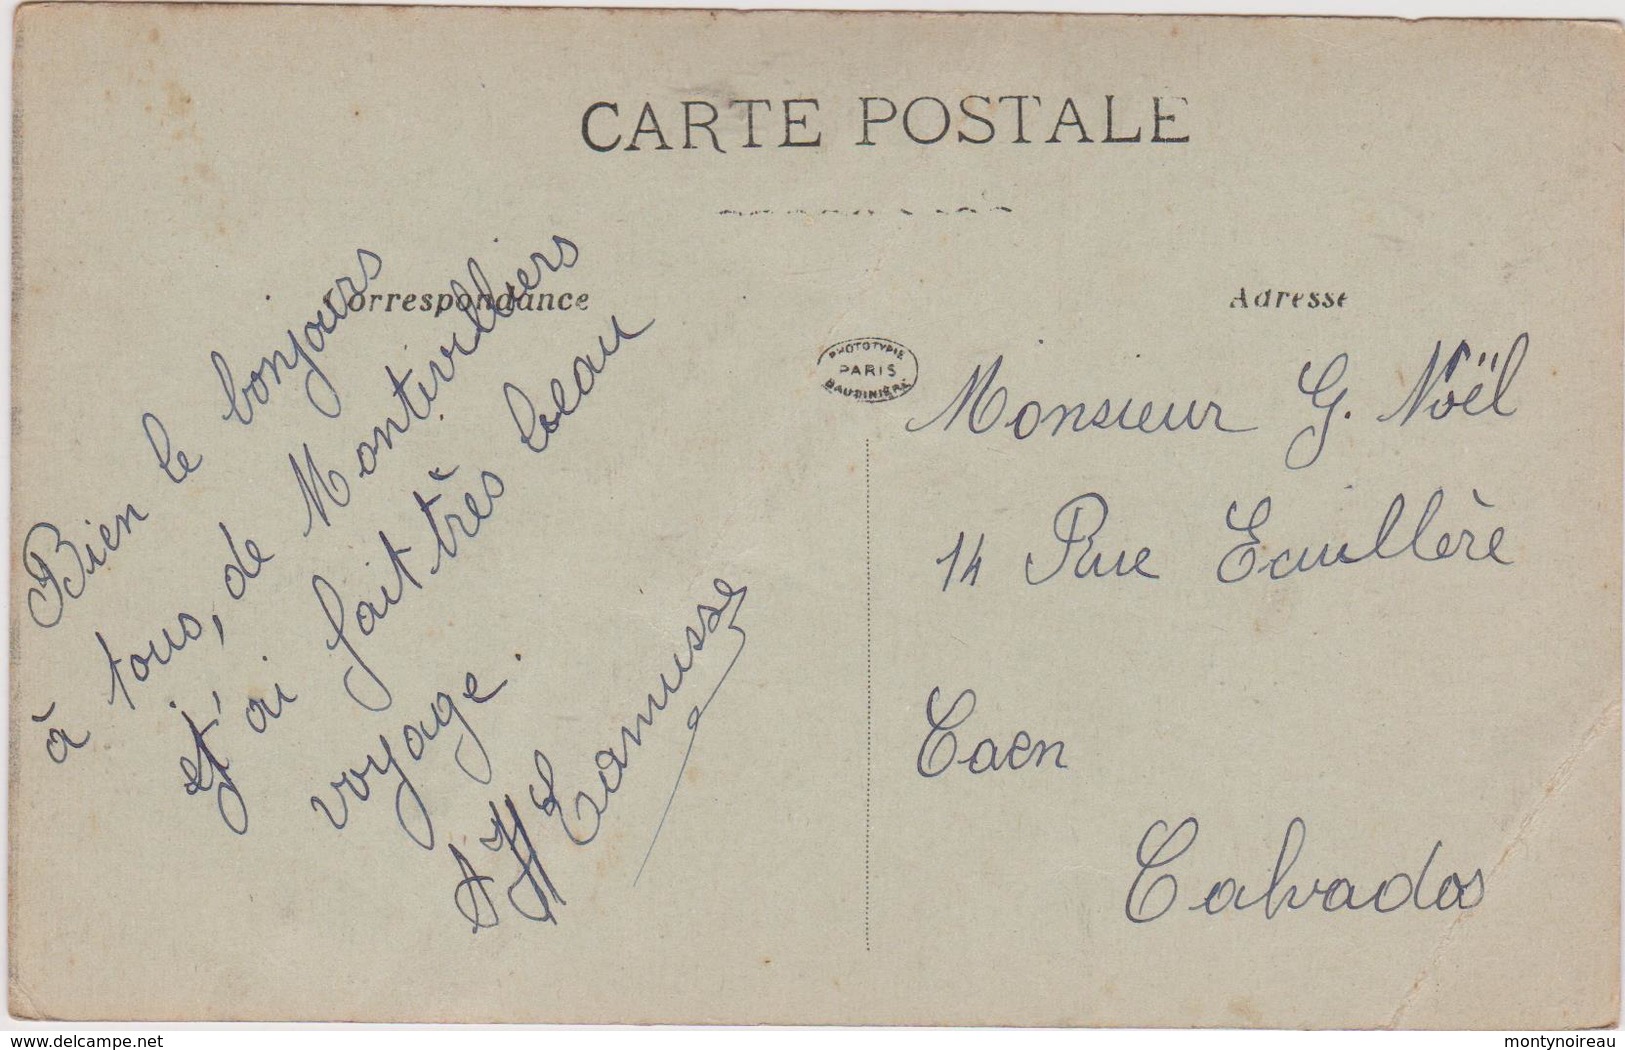 CARTE POSTALE
Correspondance
Adresse
PHOTOTYPIE
PARIS
BAUDINIÈRE
Bien le bonjours
à tous, de Montivilliers
et j'ai fait très beau
voyage.
Monsieur G. Noël
14 Rue Ecuillère
Caen
Calvados
delcampe.net
montynoireau